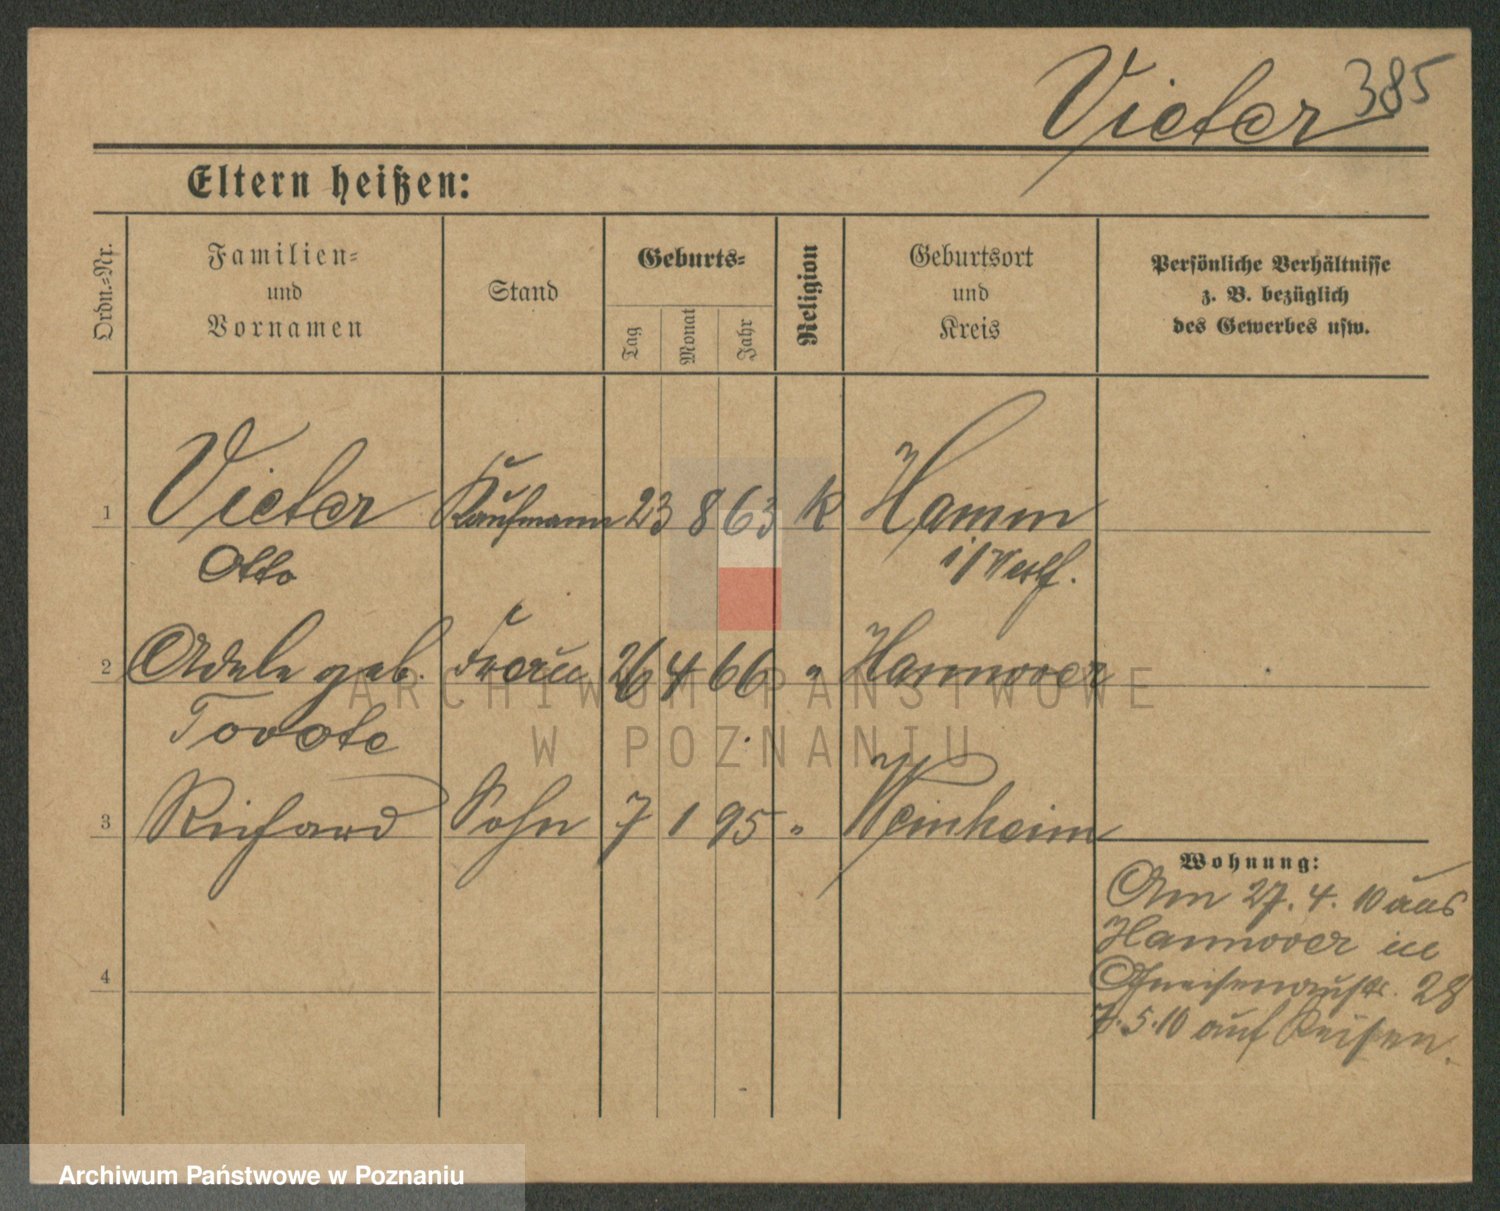 Vieter 385
Eltern heißen:
Ordn.-Nr.
Familien-
und
Vornamen
Stand
Geburts-
Tag
Monat
Jahr
Religion
Geburtsort
und
Kreis
Persönliche Verhältnisse
z. B. bezüglich
des Gewerbes usw.
1 Vieter Kaufmann 23 8 63 k Hamm
Otto i/Westf.
2 Adele geb. Frau 26 4 66 " Hannover
Tovote
3 Richard Sohn 7 1 95 " Weinheim
Wohnung:
Am 27. 4. 10 aus
Hannover in
Gneisenaustr. 28
7. 5. 10 auf Reisen.
4
ARCHIWUM PAŃSTWOWE
W POZNANIU
Archiwum Państwowe w Poznaniu